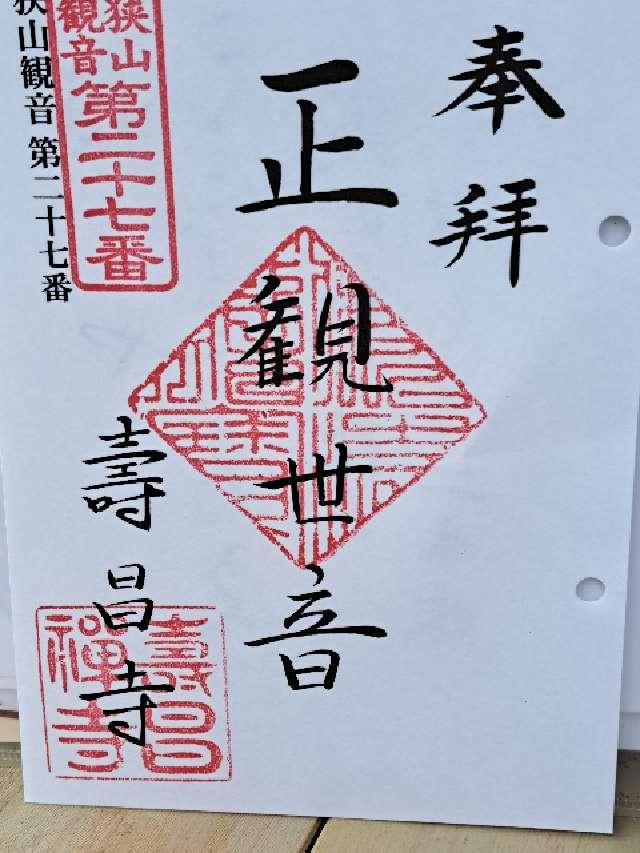 奉拝
正観世音
壽昌寺
狭山観音
第二十七番
狭山観音 第二十七番
壽昌禅寺